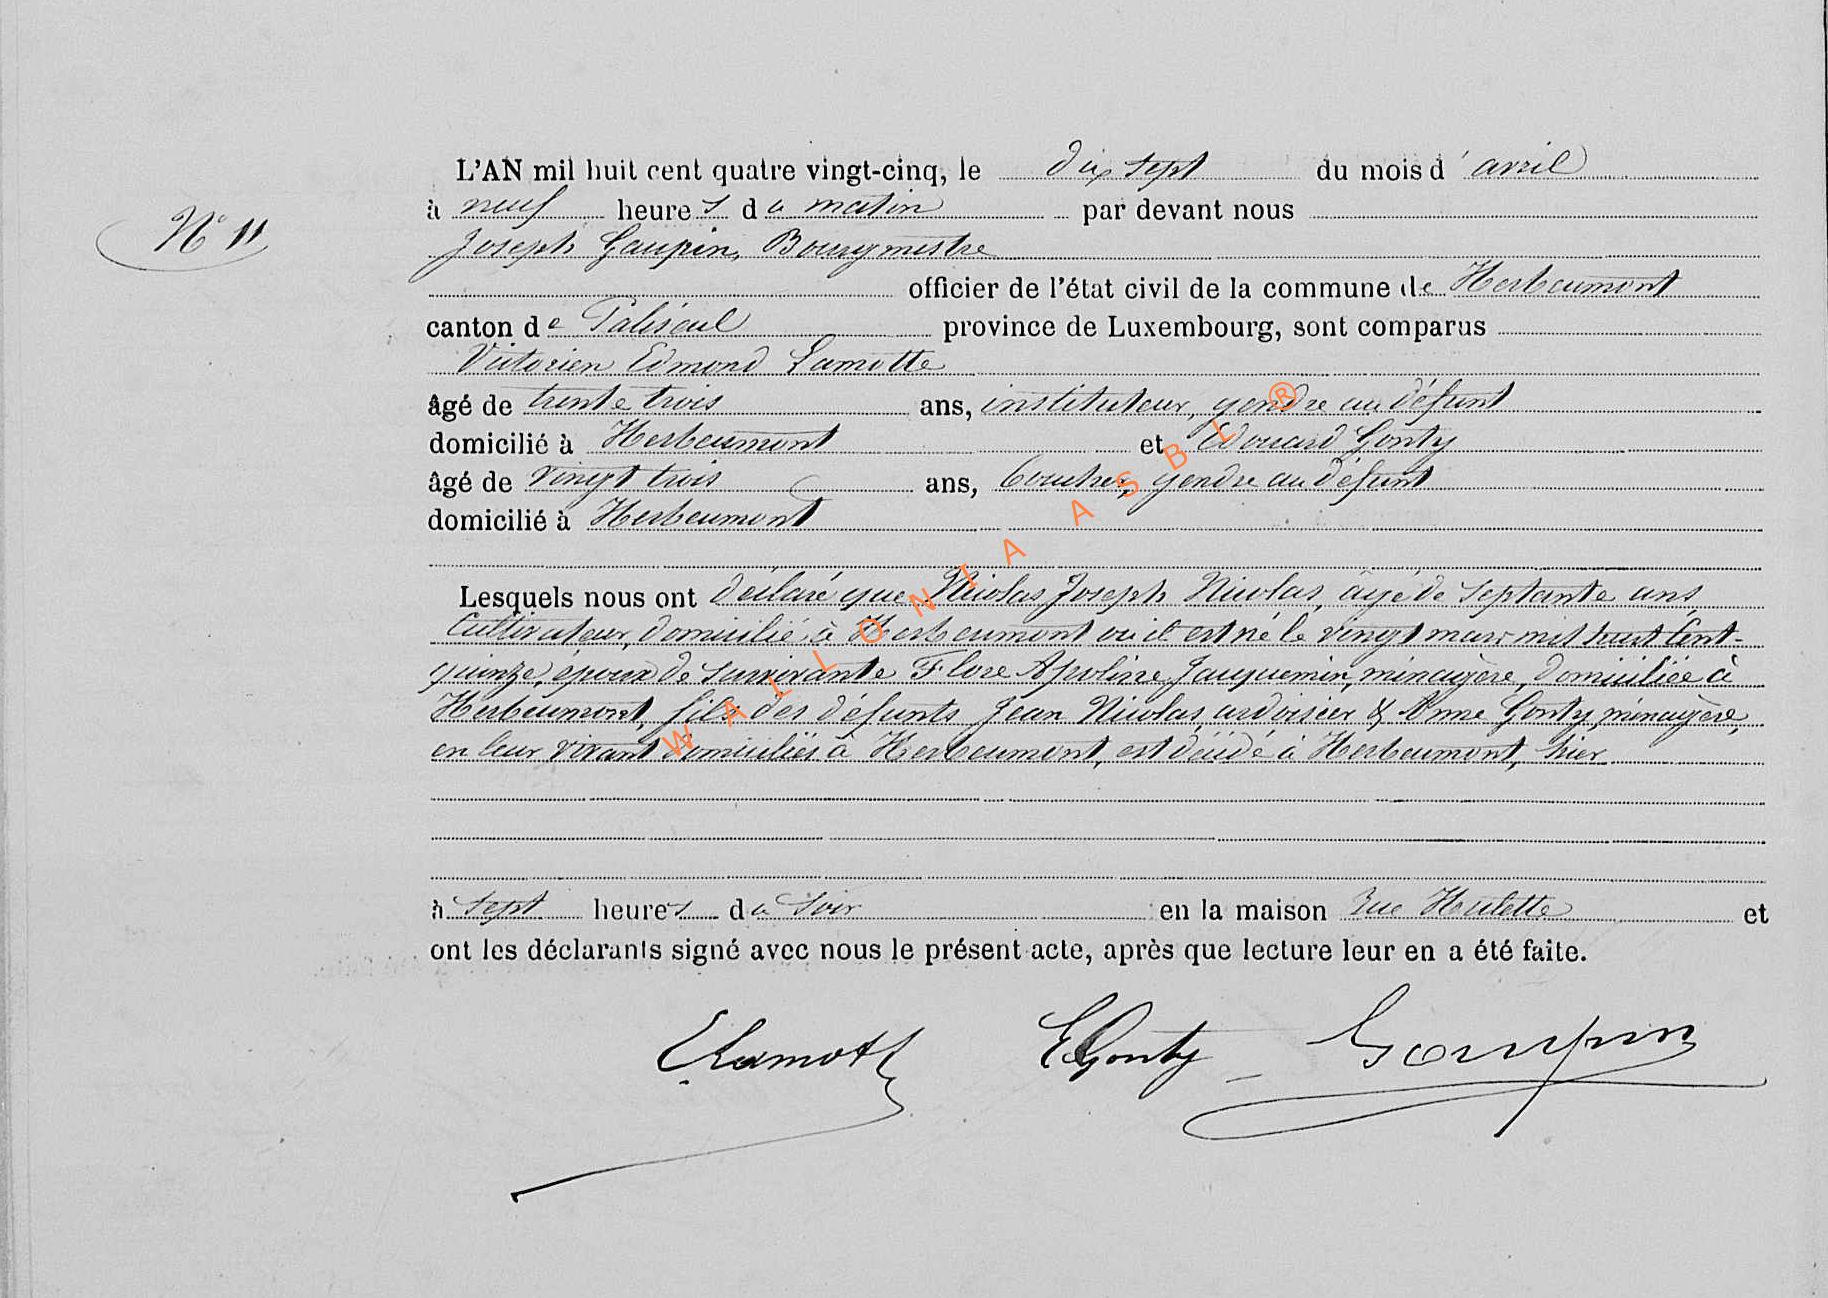 L'AN mil huit cent quatre vingt-cinq, le dix sept du mois d'avril
à neuf heures du matin par devant nous
N° 11
Joseph Gaupin, Bourgmestre
officier de l'état civil de la commune de Herbeumont
canton de Paliseul province de Luxembourg, sont comparus
Victorien Edmond Lamotte
âgé de trente trois ans, instituteur, gendre au défunt
domicilié à Herbeumont et Edouard Gonty
âgé de vingt trois ans, boucher, gendre au défunt
domicilié à Herbeumont
Lesquels nous ont déclaré que Nicolas Joseph Nicolas, âgé de septante ans
cultivateur, domicilié à Herbeumont où il est né le vingt mars mil huit cent-
quinze, époux de survivante Flore Apoline Jacquemin, ménagère, domiciliée à
Herbeumont, fils des défunts Jean Nicolas, ardoisier & Anne Gonty, ménagère,
en leur vivant domiciliés à Herbeumont, est décédé à Herbeumont, hier
à sept heures du soir en la maison rue Hulette et
ont les déclarants signé avec nous le présent acte, après que lecture leur en a été faite.
ELamotte EGonty Gaupin
WALLONIA ASBL ®